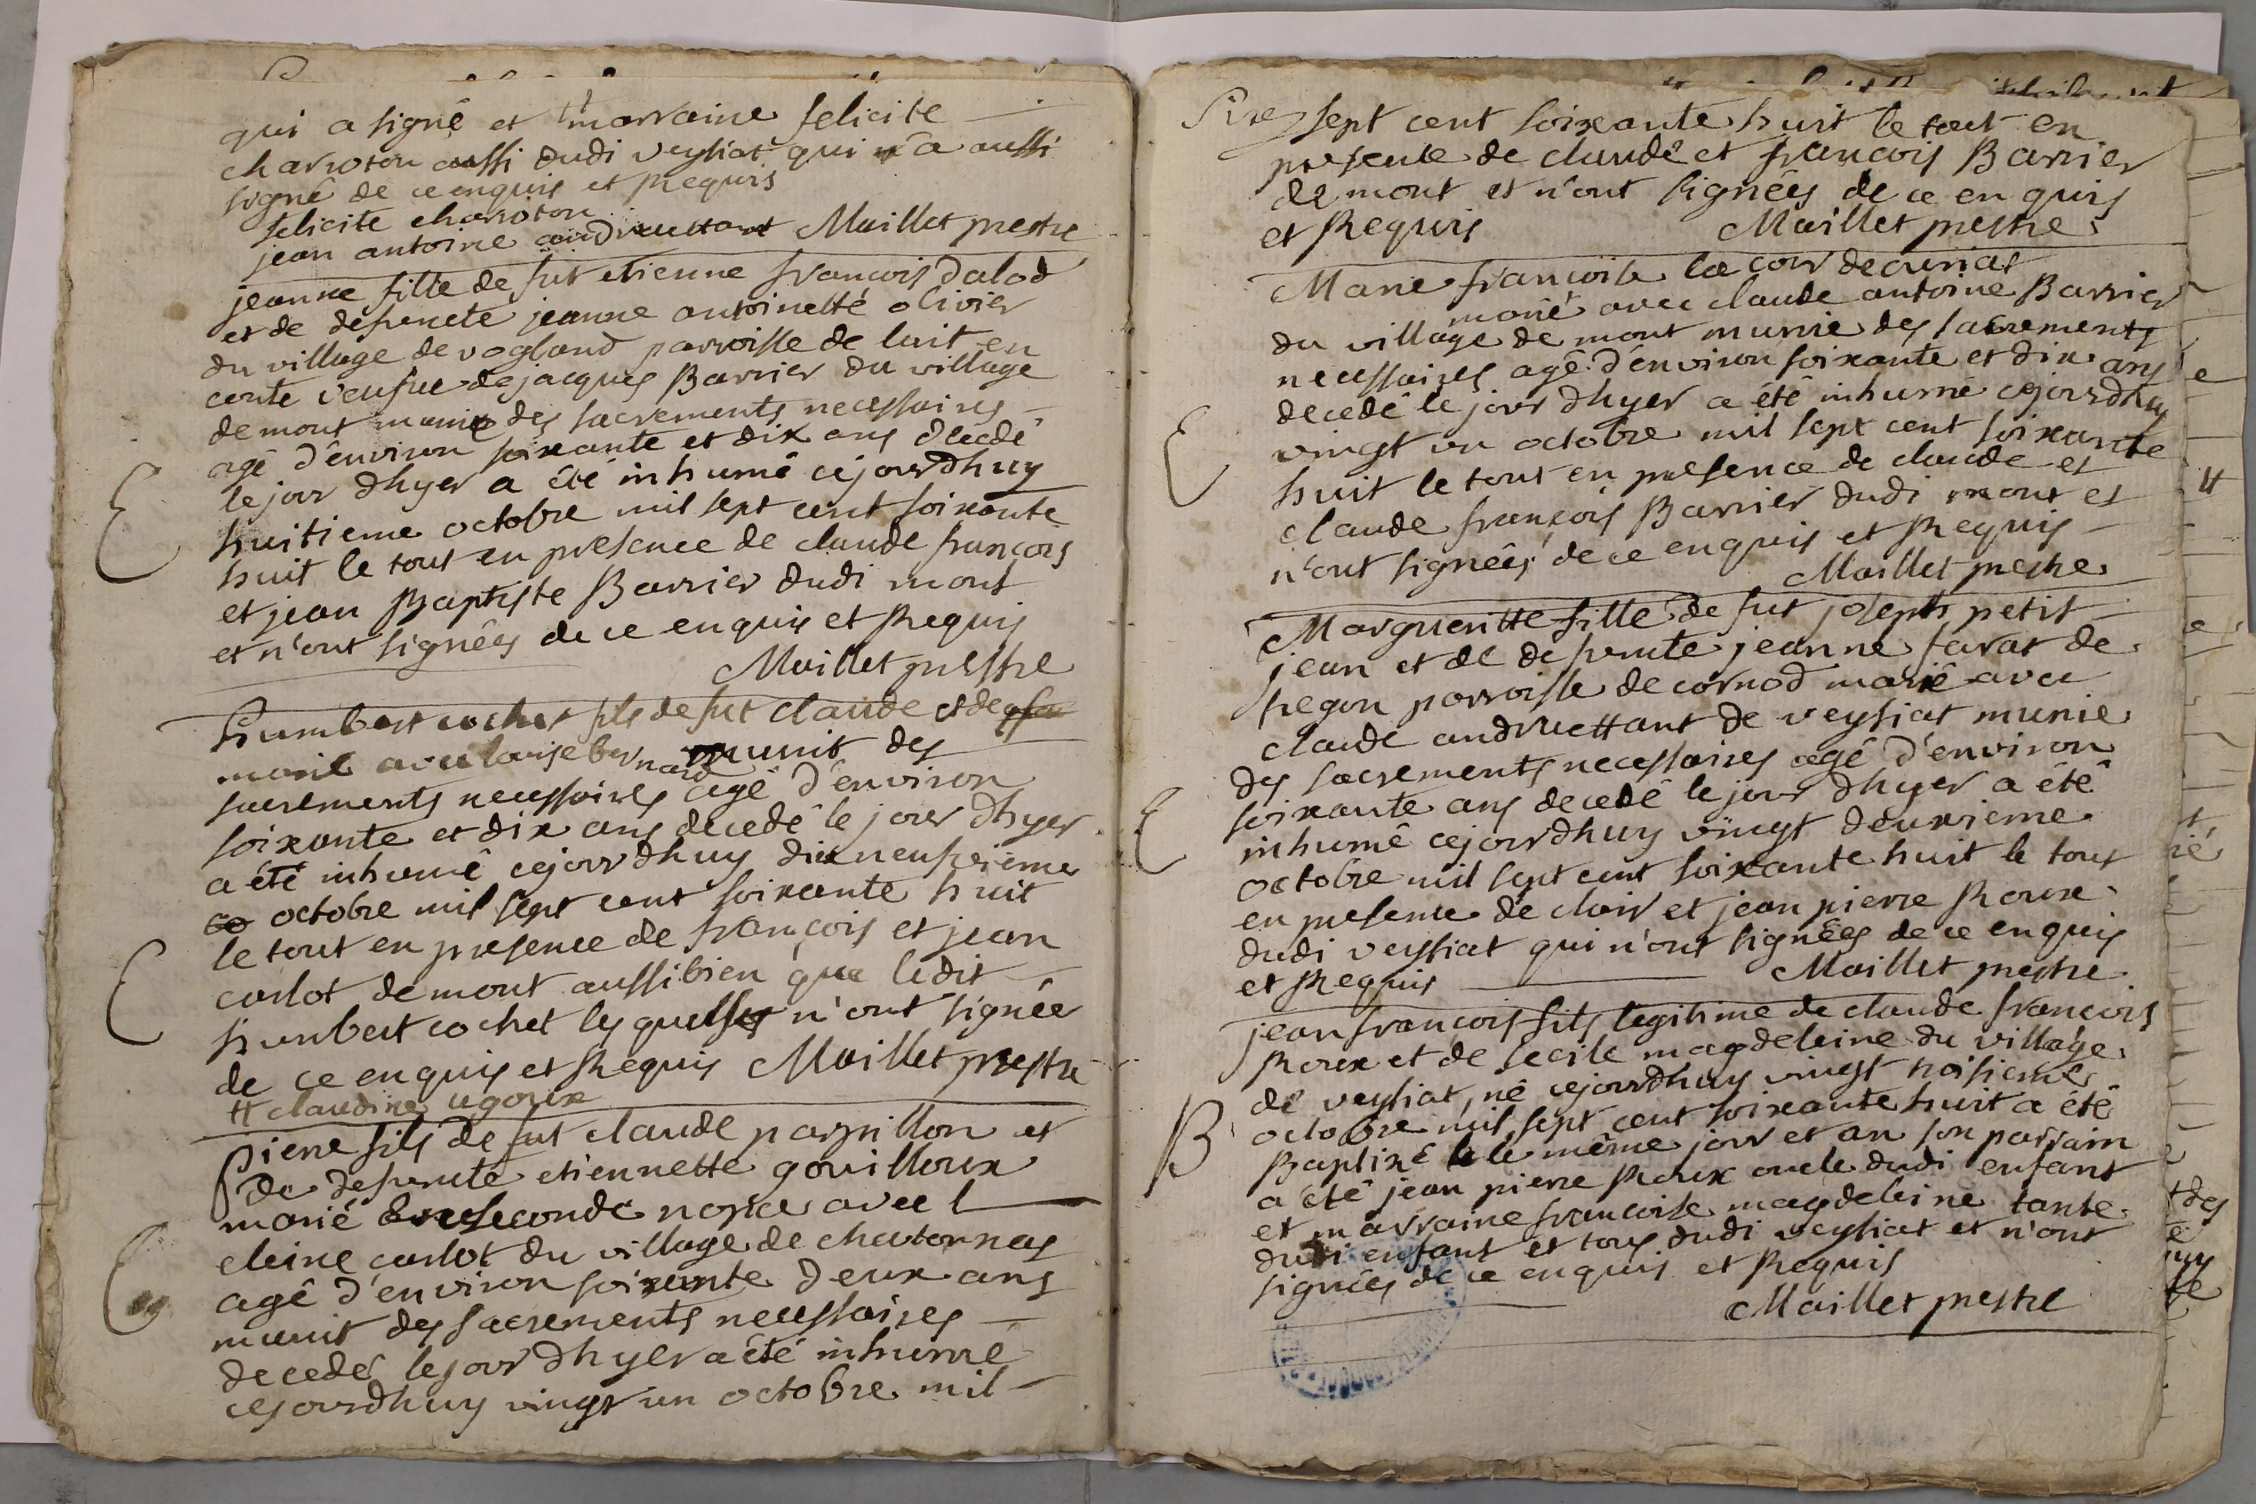 qui a signé et marraine felicite
charroton aussi dudi veysiat qui a aussi
signé de ce enquis et Requis
felicite charroton
jean antoine andruettant Maillet prestre
jeanne fille de fut etienne francois dalod
et de defuncte jeanne antoinetté olivier
du village de vogland parroisse de lait en
conte veufue de jacques Barrier du village
de mont munie des sacrements necessaires
agé d'environ soixante et dix ans décédé
le jour dhyer a été inhumé cejourdhuy
huitieme octobre mil sept cent soixante
huit le tout en presence de claude francois
et jean Baptiste Barrier dudi mont
et n'ont signées de ce enquis et Requis
Maillet prestre
humbert cochet fils de fut claude et de #
marié avec louise bernard munit des
sacrements necessaires agé d'environ
soixante et dix ans decedé le jour dhyer
a été inhumé cejourdhuy dixneufvieme
octobre mil sept cent soixante huit
le tout en presence de françois et jean
carlot de mont aussibien que ledit
humbert cochet lesquels n'ont signée
de ce enquis et Requis Maillet prestre
# claudine ugoux
pierre fils de fut claude papillon et
de defuncte etiennette gouilloux
marié seconde nopce avec
cleine carlot du village de chatonnas
agé d'environ soixante deux ans
munit des sacrements necessaires
decedé le jour dhyer a été inhumé
cejourdhuy vingt un octobre mil
sept cent soixante huit le tout en
presence de claude et francois Barrier
de mont et n'ont signées de ce en quis
et Requis Maillet prestre
Marie francoise lacour decuriat
marié avec claude antoine Barrier
du village de mont munie des sacrements
necessaires agé d'environ soixante et dix ans
decedé le jour dhyer a été inhumé cejourdhuy
vingt un octobre mil sept cent soixante
huit le tout en presence de claude et
claude françois Barrier dudi mont et
n'ont signées de ce enquis et Requis
Maillet prestre
Margueritte fille de fut joseph petit
jean et de defuncte jeanne favat de
parroisse de cornod marié avec
claude andruettant de veysiat munie
des sacrements necessaires agé d'environ
soixante ans decedé le jour dhyer a été
inhumé cejourdhuy vingt deuxieme
octobre mil sept cent soixante huit le tout
en presence de clair et jean pierre Roux
dudi veysiat qui n'ont signées de ce enquis
et Requis Maillet prestre
jean francois fils legitime de claude francois
Roux et de cecile magdeleine du village
de veysiat, né cejourdhuy vingt troisieme
octobre mil sept cent soixante huit a été
Baptizé le même jour et an son parrain
a été jean pierre Roux oncle dudi enfant
et marraine francoise magdeleine tante
dudi enfant et tous dudi veysiat et n'ont
signées de ce enquis et Requis
Maillet prestre